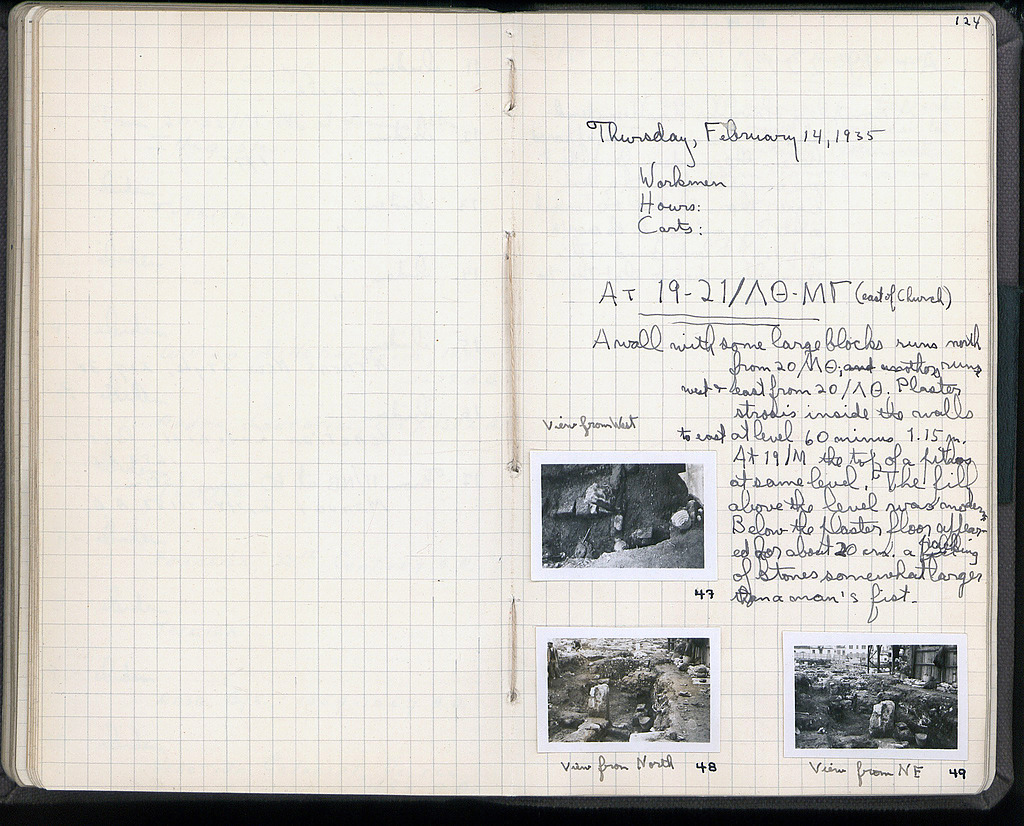 124
Thursday, February 14, 1935
Workmen
Hours:
Carts:
At 19-21/ΛΘ-ΜΓ (east of Church)
A wall with some large blocks runs north
from 20/ΛΘ; and another runs
west & east from 20/ΛΘ. Plaster
strosis inside the walls
to east at level 60 minus 1.15 m.
At 19/Μ the top of a pithos
at same level. The fill
above the level was modern.
Below the plaster floor appear-
ed for about 20 cm. a packing
of stones somewhat larger
than a man's fist.
View from West
47
View from North 48
View from NE 49